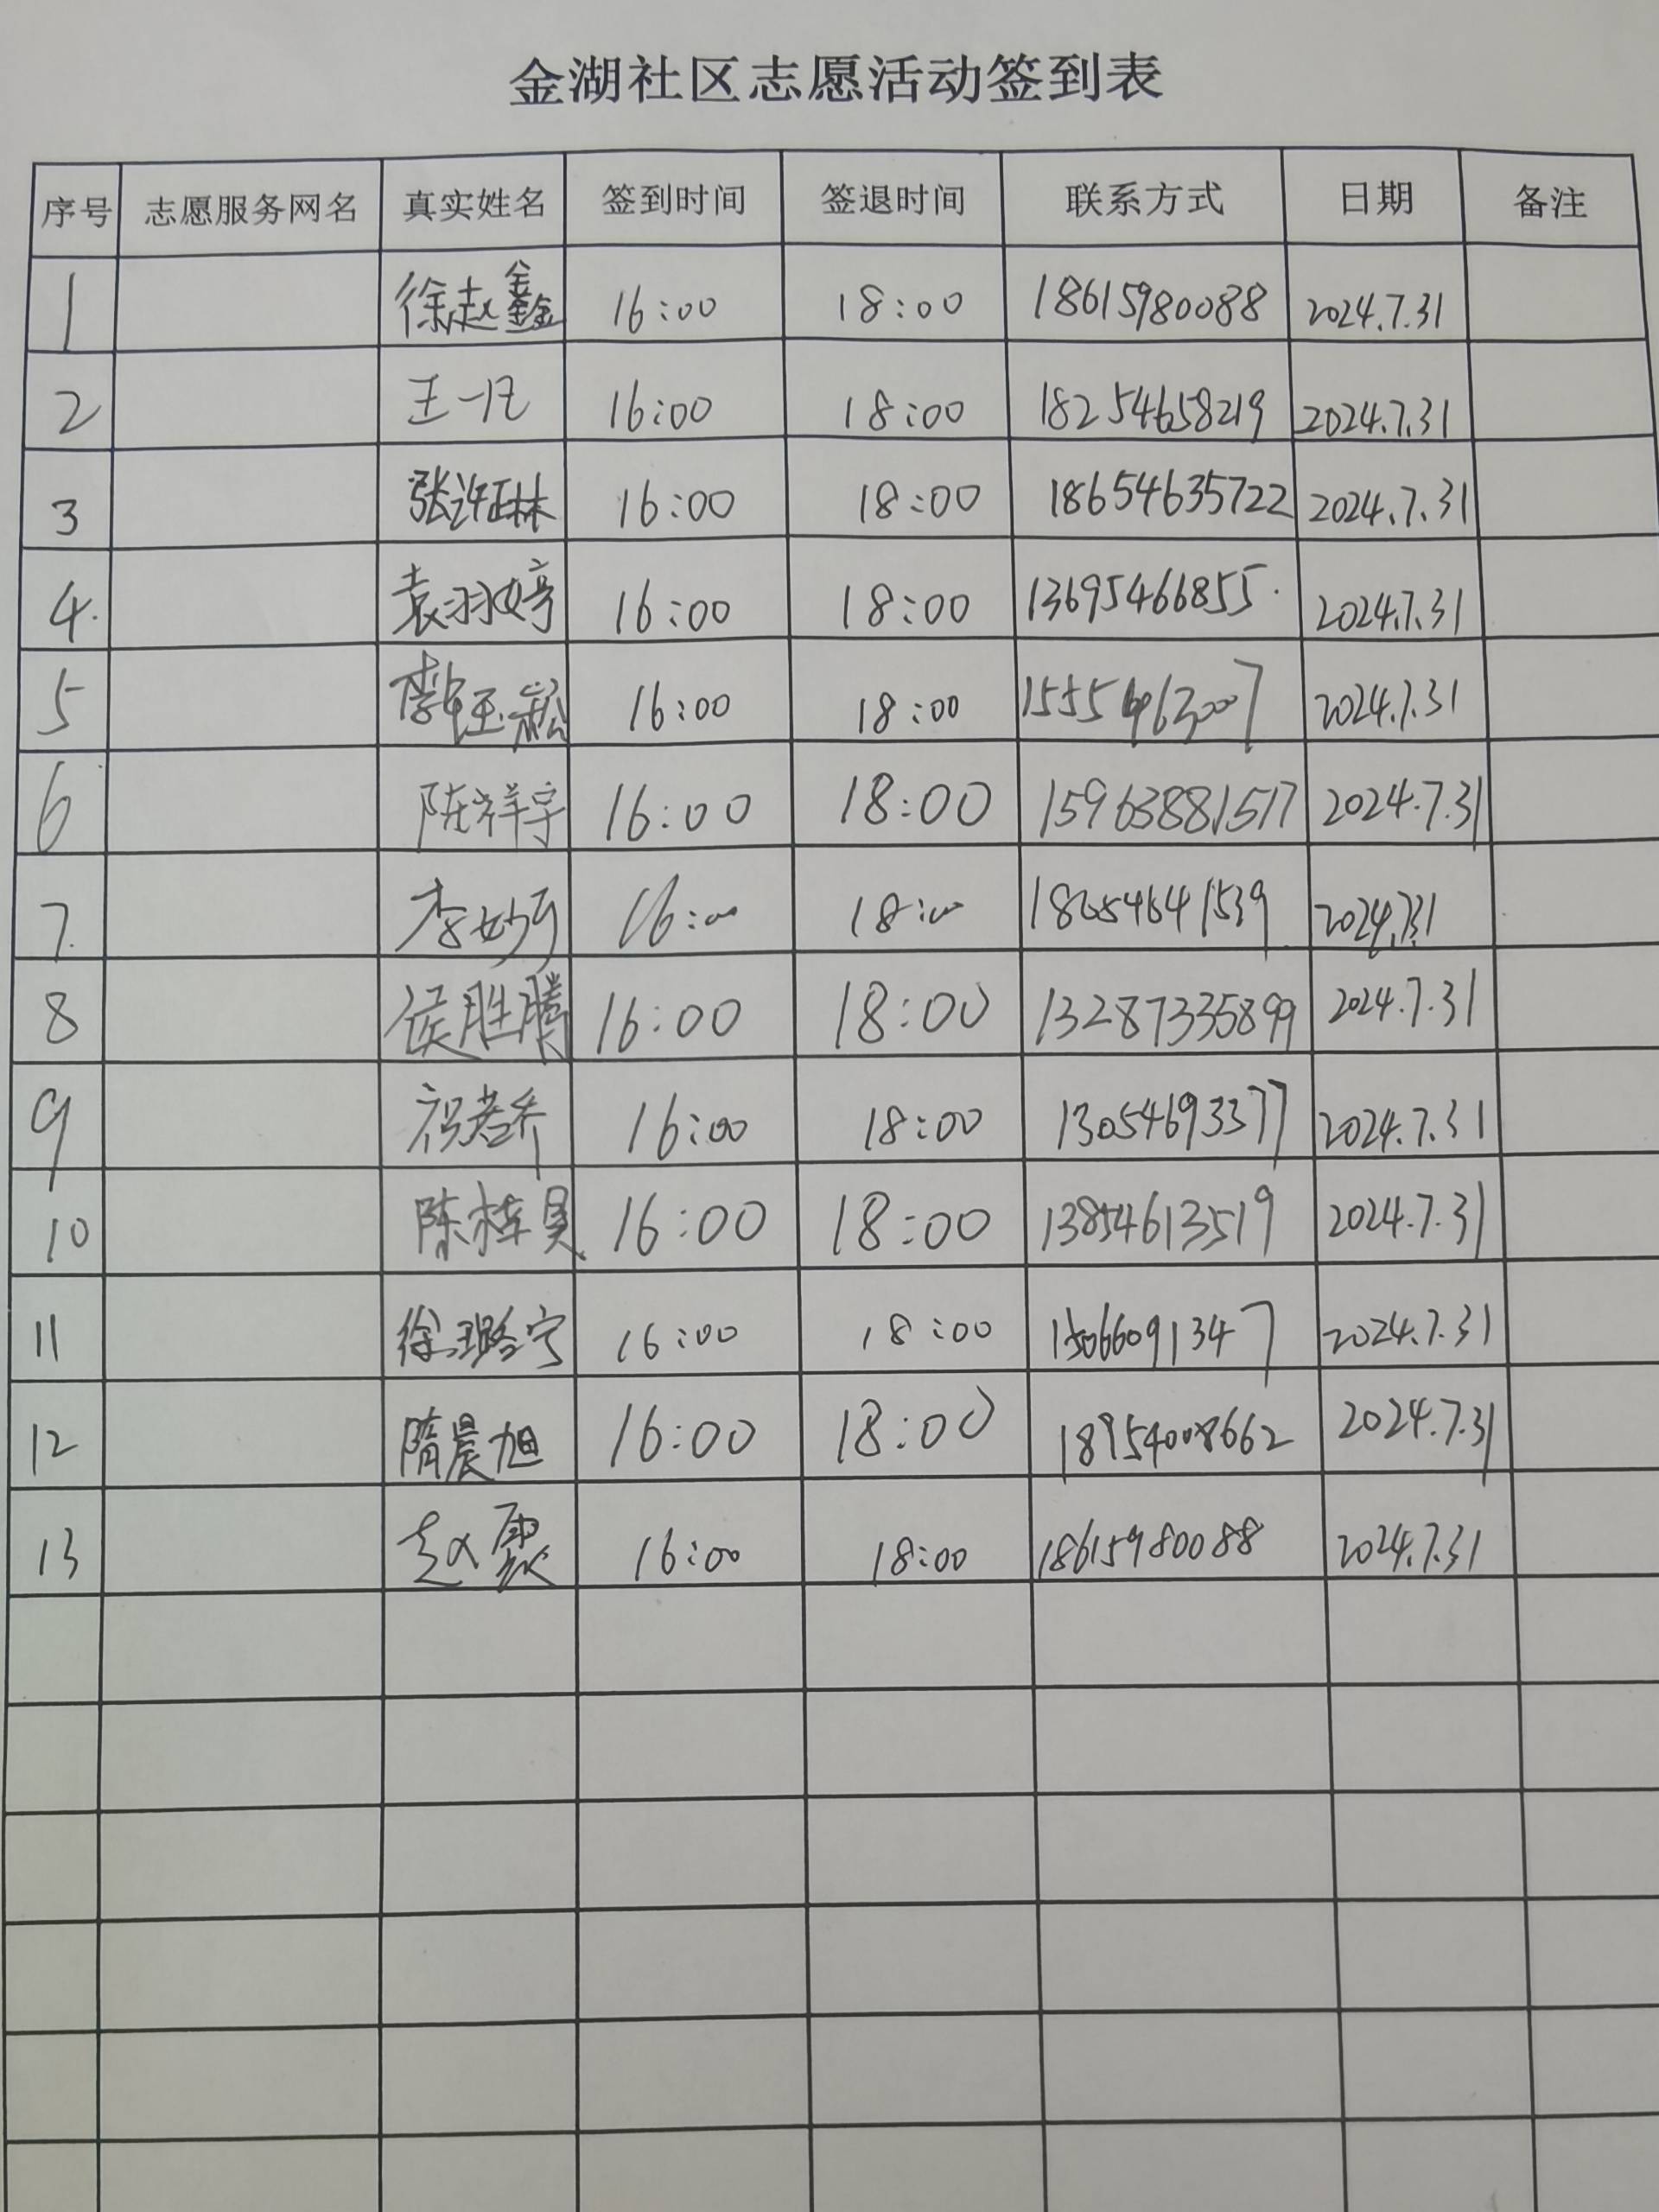 金湖社区志愿活动签到表
序号 志愿服务网名 真实姓名 签到时间 签退时间 联系方式 日期 备注
1 徐赵鑫 16:00 18:00 18615980088 2024.7.31
2 王一凡 16:00 18:00 18254658219 2024.7.31
3 张许琳 16:00 18:00 18654635722 2024.7.31
4. 袁羽婷 16:00 18:00 13695466855. 2024.7.31
5 16:00 18:00 2024.7.31
6 陈祥宇 16:00 18:00 15963881517 2024.7.31
7. 李妙 16:00 18:00 2024.7.31
8 侯胜腾 16:00 18:00 13287335899 2024.7.31
9 祝君乔 16:00 18:00 13054693377 2024.7.31
10 16:00 18:00 13854613519 2024.7.31
11 徐璐宁 16:00 18:00 15066091347 2024.7.31
12 隋晨旭 16:00 18:00 18954008662 2024.7.31
13 赵霞 16:00 18:00 18615980088 2024.7.31